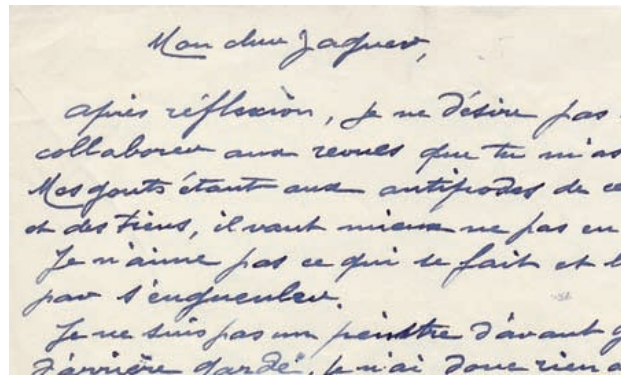 Mon cher Jaques,
après réflexion, je ne désire pas
collaborer aux revues que tu m'as
Mes gouts étant aux antipodes de ce
et des tiens, il vaut mieux ne pas en
Je n'aime pas ce qui se fait et
par s'engueuler.
Je ne suis pas un peintre d'avant g
d'arrière garde, je n'ai donc rien a